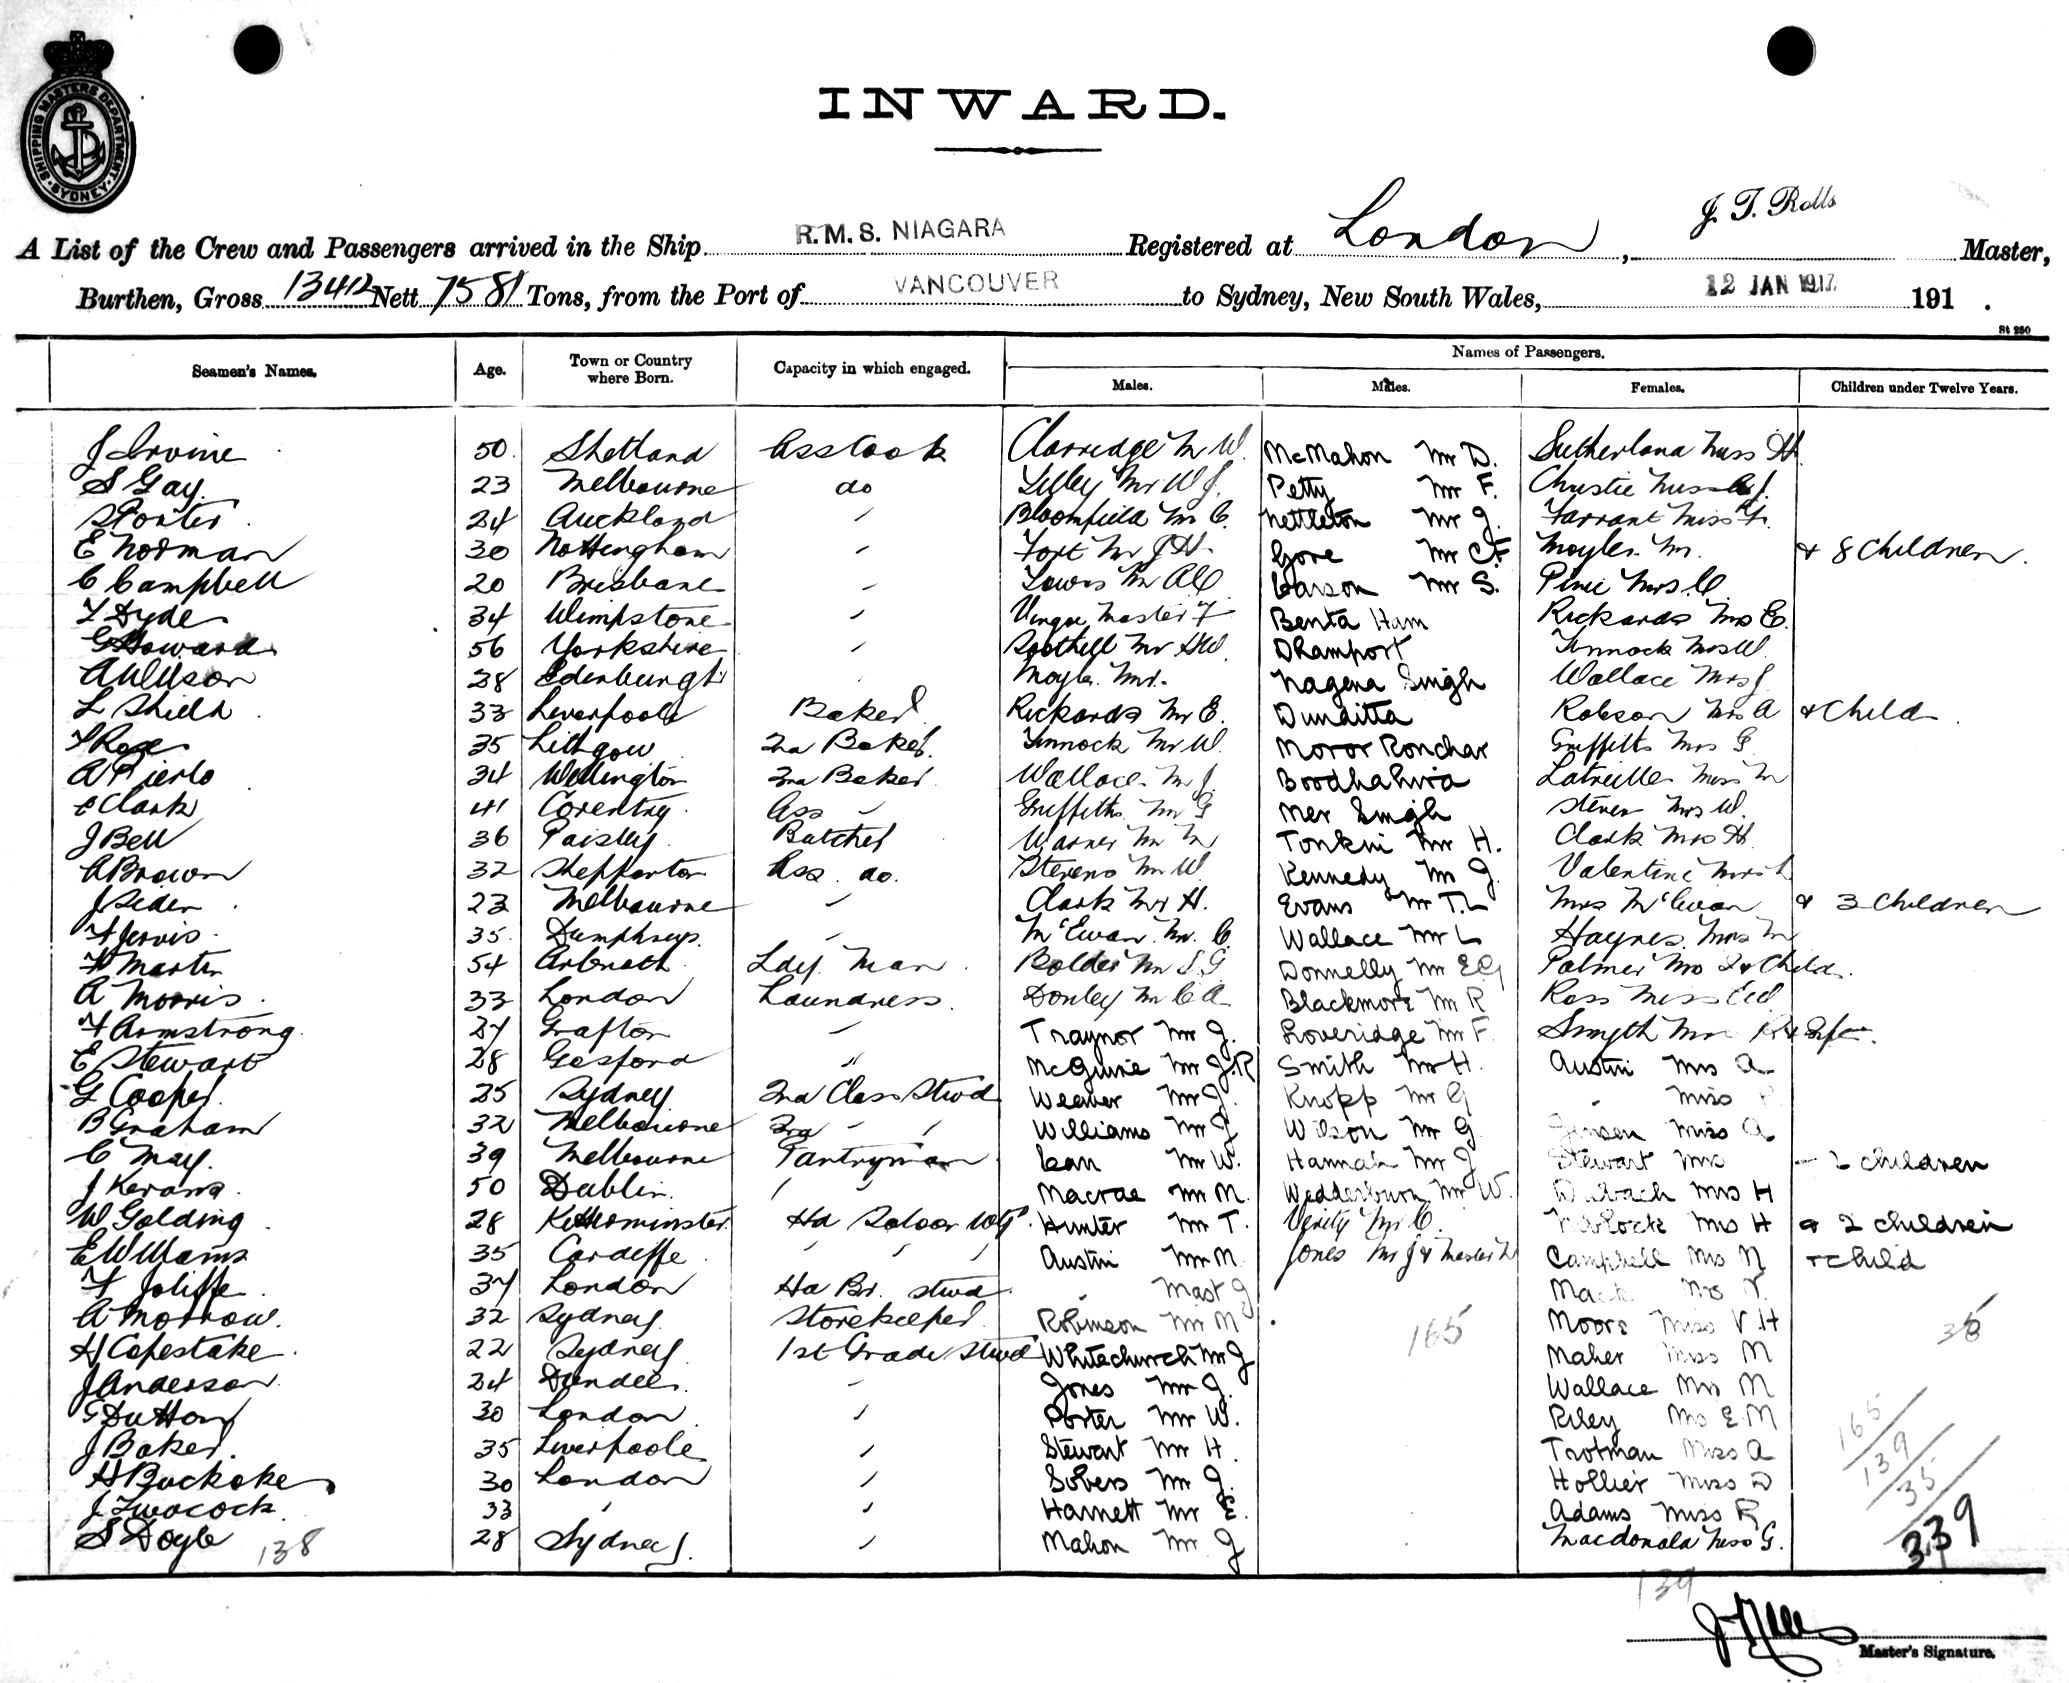 SHIPPING MASTERS DEPARTMENT SYDNEY
INWARD.
J. T. Rolls
A List of the Crew and Passengers arrived in the Ship R.M.S. NIAGARA Registered at London, Master,
Burthen, Gross 13412 Nett 7581 Tons, from the Port of VANCOUVER to Sydney, New South Wales, 12 JAN 1917 191 .
St 250
Seamen's Names. Age. Town or Country where Born. Capacity in which engaged. Names of Passengers.
Males. Males. Females. Children under Twelve Years.
J Irvine 50 Shetland Ass Cook Clarridge Mr W. McMahon Mr D. Sutherland Miss H
S Gay 23 Melbourne do Lilley Mr W J. Petty Mr F. Christie Miss J.
S Porter 24 Auckland " Bloomfield Mr C. Nettleton Mr J. Farrant Miss
E Norman 30 Nottingham " Fort Mr J H. Gore Mr C.F. Moyler M & 8 Children.
C Campbell 20 Brisbane " Lewis Mr A C. Carson Mr S. Pirie Mrs C.
Dyde 34 Wimpstone " Master F Benta Ham Rickards Mrs E.
G Howard 56 Yorkshire " Mr H W. Dhamport Finnock Mrs W.
A Wilson 28 Edinburgh " Moyler Mr. Nagena Singh Wallace Mrs J.
L Shield 33 Liverpool Baker Rickards Mr E. Dunditta Robson Mrs A & Child
F Rose 35 Lithgow 2nd Baker Finnock Mr W. Moror Ronchar Griffiths Mrs G
A Pierlo 34 Wellington 3rd Baker Wallace Mr J. Boodhahwa Latreille Miss M
E Clark 41 Coventry Ass " Griffiths Mr G Mer Singh Steven Mrs W.
J Bell 36 Paisley Butcher Warner Mr M Tonkin Mr H. Clark Mrs H.
A Brown 32 Shepparton Ass. do. Stevens Mr W. Kennedy Mr J. Valentine Mrs L
J Seden 23 Melbourne " Clark Mr H. Evans Mr T. L Mrs McEwan & 3 Children
F Jervis 35 Dumphreys " McEwan Mr C. Wallace Mr L Haynes Mrs M
W Martin 54 Arbroath Ldy. Man Bolder Mr S G Donnelly Mr E G Palmer Mrs & Child.
A Morris 33 London Laundress Donley Mr C A. Blackmore Mr R Ross Miss E W
F Armstrong 27 Grafton " Traynor Mr J. Loveridge Mr F. Smyth Mrs R & Inft
E Stewart 28 Gosford " McGuire Mr J.R Smith Mr H. Austin Mrs A
G Cooper 25 Sydney 2nd Class Stwd Weaver Mr J. Knopp Mr G " Miss
B Graham 32 Melbourne 3rd " " Williams Mr J Wilson Mr G Jensen Miss A
C May 39 Melbourne Pantryman Carr Mr W. Hannah Mr J Stewart Mrs - 2 children
J Kerans 50 Dublin " " Macrae Mr M. Wedderburn Mr W. Dubach Mrs H
W Golding 28 Kidderminster Hd Saloon Wtr. Hunter Mr T. Verity Mr C. Niblock Mrs H & 2 children
E Williams 35 Cardiffe " " " Austin Mr M. Jones Mr J & Master Campbell Mrs N + child
F Joliffe 37 London Hd Br. Stwd " Mast G Mack Mrs
A Morrow 32 Sydney Storekeeper Robinson Mr M 165 Moore Miss V. H 35
H Copestake 22 Sydney 1st Grade Stwd Whitechurch Mr J Maher Miss M
J Anderson 24 Dundee " Jones Mr J. Wallace Mrs M
G Dutton 30 London " Porter Mr W. Riley Mrs E. M 165
J Baker 35 Liverpoole " Stewart Mr H. Trotman Miss A 139
H Buckoke 30 London " Sobers Mr J. Hollier Miss D 35
J Twocock 33 " " Harnett Mr E. Adams Miss R
S Doyle 138 28 Sydney " Mahon Mr J Macdonald Miss G. 339
139
Master's Signature.